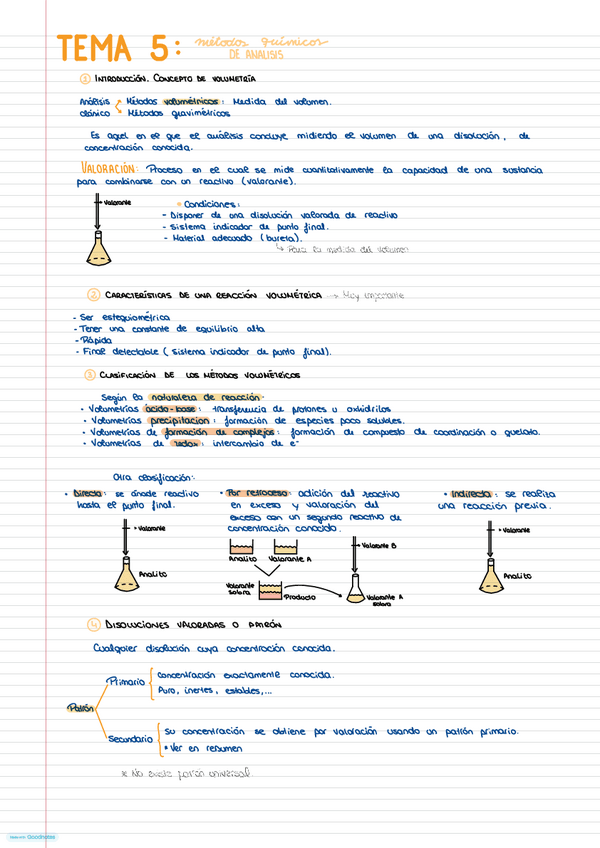 TEMA 5: métodos químicos
DE ANÁLISIS
1 INTRODUCCIÓN. CONCEPTO DE VOLUMETRÍA
Análisis Métodos volumétricos: Medida del volumen.
clásico Métodos gravimétricos
Es aquel en el que el análisis concluye midiendo el volumen de una disolución, de
concentración conocida.
VALORACIÓN: Proceso en el cual se mide cuantitativamente la capacidad de una sustancia
para combinarse con un reactivo (valorante).
Valorante
* Condiciones:
- Disponer de una disolución valorada de reactivo
- Sistema indicador de punto final.
- Material adecuado (bureta).
↳ Para la medida del volumen
2 CARACTERÍSTICAS DE UNA REACCIÓN VOLUMÉTRICA → Muy importante
- Ser estequiométrica
- Tener una constante de equilibrio alta
- Rápida
- Final detectable (sistema indicador de punto final).
3 CLASIFICACIÓN DE LOS MÉTODOS VOLUMÉTRICOS
Según la naturaleza de reacción:
• Volumetrías ácido-base: transferencia de protones u oxhidrilos
• Volumetrías precipitación: formación de especies poco solubles.
• Volumetrías de formación de complejos: formación de compuesto de coordinación o quelato.
• Volumetrías de redox: intercambio de e⁻
Otra clasificación:
• Directa: se añade reactivo
hasta el punto final.
Valorante
Analito
• Por retroceso: adición del reactivo
en exceso y valoración del
exceso con un segundo reactivo de
concentración conocido.
Analito Valorante A
Valorante
sobra
Producto
Valorante B
Valorante A
sobra
• Indirecta: se realiza
una reacción previa.
Valorante
Analito
4 DISOLUCIONES VALORADAS O PATRÓN
Cualquier disolución cuya concentración conocida.
Patrón
Primario
Concentración exactamente conocida.
Puro, inertes, estables,...
Secundario
Su concentración se obtiene por valoración usando un patrón primario.
* Ver en resumen
* No existe patrón universal.
Goodnotes